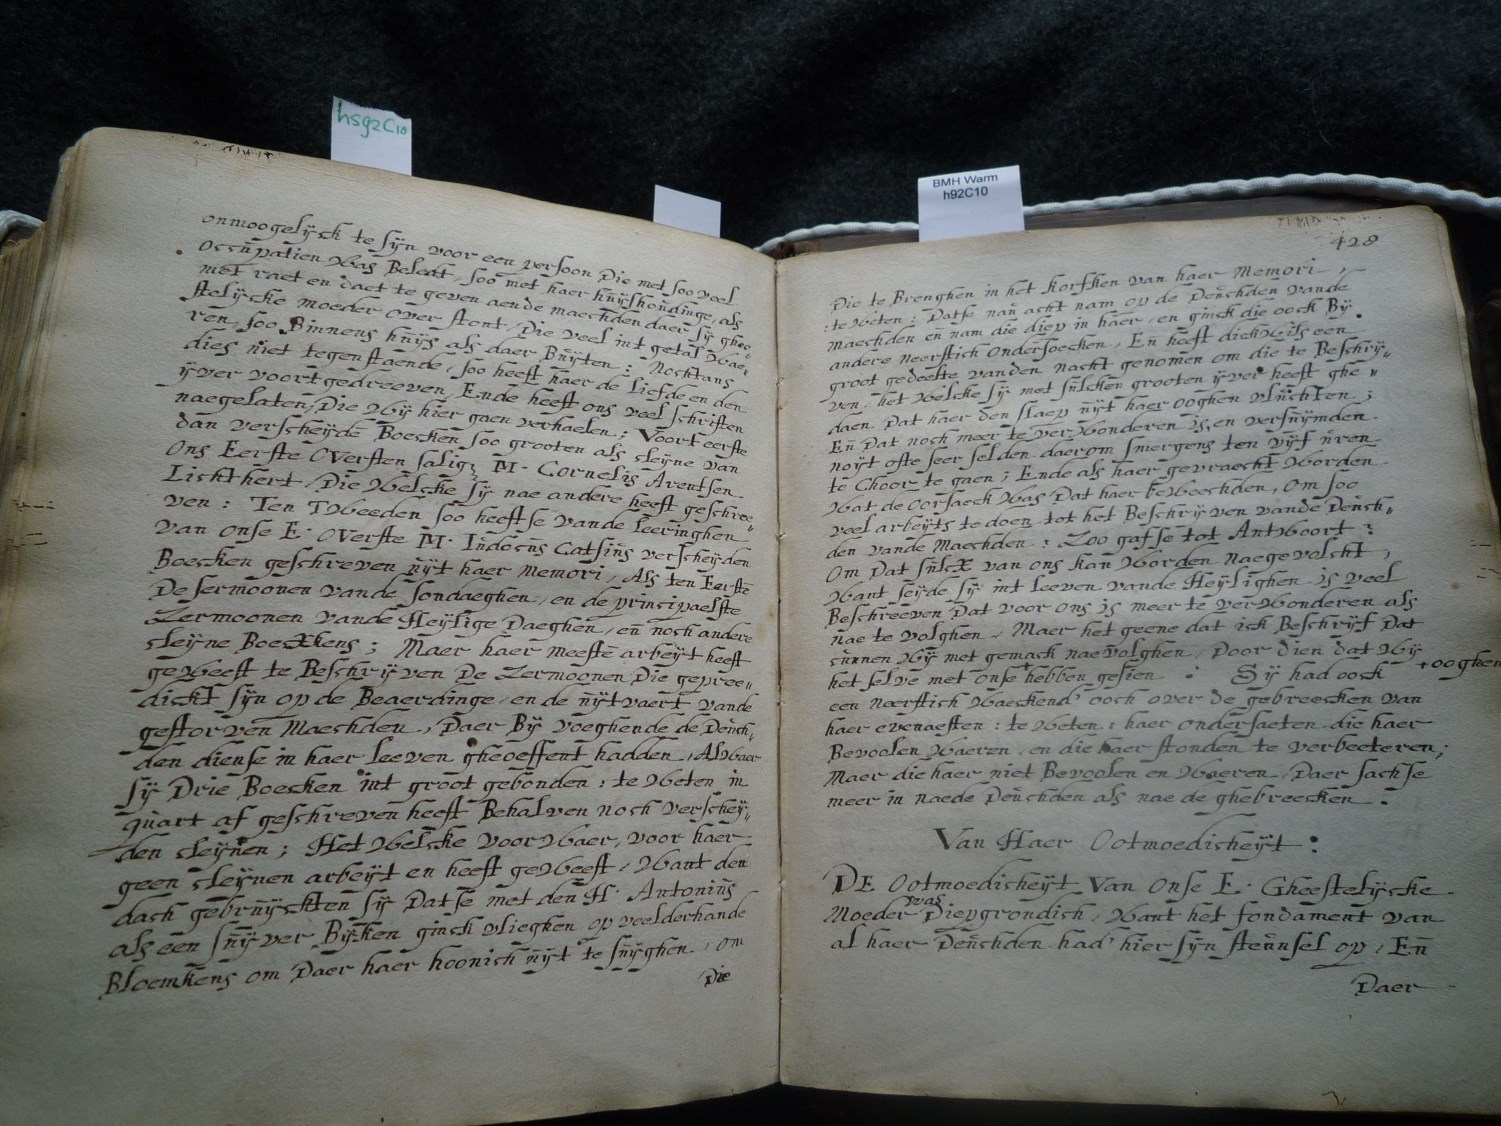 hs92C10
BMH Warm
h92C10
onmoogelijck te sijn voor een persoon Die met soo veel
occupatien Was Belaet, soo met haer huijshoudinge, als
met raet en daet te geven aende maechden daer sij ghee„
stelijcke moeder over stont, Die veel int getal Wae„
ren, soo Binnens huijs als daer Buijten: Nochtans
dies niet tegenstaende, soo heeft haer de liefde en den
ijver voortgedreeven, Ende heeft ons veel schriften
naegelaten, Die Wij hier gaen verhaelen; Voort eerste
dan verscheijde Boecken soo grooten als cleijne van
Ons Eerste Oversten salig: M. Cornelis Arentsen
Lichthert, Die Welcke sij nae andere heeft geschree„
ven: Ten Tweeden soo heeftse vande leeringhen
van onse E. Overste M. Iudocus Catsius verscheijden
Boecken geschreven uijt haer memori, Als ten Eerste
De sermoonen vande sondaeghen, en de principaelste
Zermoonen vande Heijlige Daeghen, en noch andere
cleijne Boexkens; Maer haer meeste arbeijt heeft
geweest te Beschrijven De Zermoonen Die gepree„
dickt sijn op de Beaerdinge, en de uijtvaert vande
gestorven Maechden, Daer Bij voeghende de Deuch„
den diense in haer leeven gheoeffent hadden, Alwaer
sij Drie Boecken int groot gebonden: te Weten in
quart af geschreven heeft Behalven noch verscheij„
den cleijnen; Het Welcke voorwaer, voor haer
geen cleijnen arbeijt en heeft geWeeft, Want den
dach gebruijckten sij Datse met den H. Antonius
als een suijver Bijken ginck vlieghen op veelderhande
Bloemkens om Daer haer hoonich uijt te suijghen, om
Die
428
Die te Brenghen in het korfken van haer Memori,
te Weten: Datse nau acht nam op de Deuchden vande
maechden en nam die diep in haer, en ginck die oock Bij
andere neerstich ondersoecken, En heeft dickWils een
groot gedeelte vanden nacht genomen om die te Beschrij„
ven, het Welcke sij met sulcken grooten ijver heeft ghe„
daen Dat haer den slaep uijt haer ooghen vluchten;
En Dat noch meer te verWonderen is, en versuijmden
noijt ofte seer selden daerom smergens ten vijf uren
te Choor te gaen; Ende als haer gevraecht Worden
Wat de Oorsaeck Was Dat haer beWeechden, Om soo
veel arbeijts te doen tot het Beschrijven vande Deuch„
den vande Maechden: Zoo gafse tot AntWoort:
Om Dat sulcx van ons kan Worden Naegevolcht,
Want seijde sij int leeven vande Heijlighen is veel
Beschreeven Dat voor ons is meer te verWonderen als
nae te volghen, Maer het geene dat ick Beschrijf Dat
cunnen Wij met gemack naevolghen, Door dien dat Wij
het selve met onse + hebben gesien: Sij had oock + ooghen
een Neerstich Waeckend' ooch over de gebreecken van
haer evenaesten: te Weten: haer ondersaeten die haer
Bevoolen Waeren, en die haer stonden te verbeeteren;
Maer die haer niet Bevoolen en Waeren, Daer sachse
meer in naede Deuchden als nae de ghebreecken.
Van Haer Ootmoedicheijt:
DE Ootmoedicheijt Van Onse E. Gheestelijcke
Moeder was Diepgrondich, Want het fondament van
al haer Deuchden had' hier sijn steunsel op, En
Daer